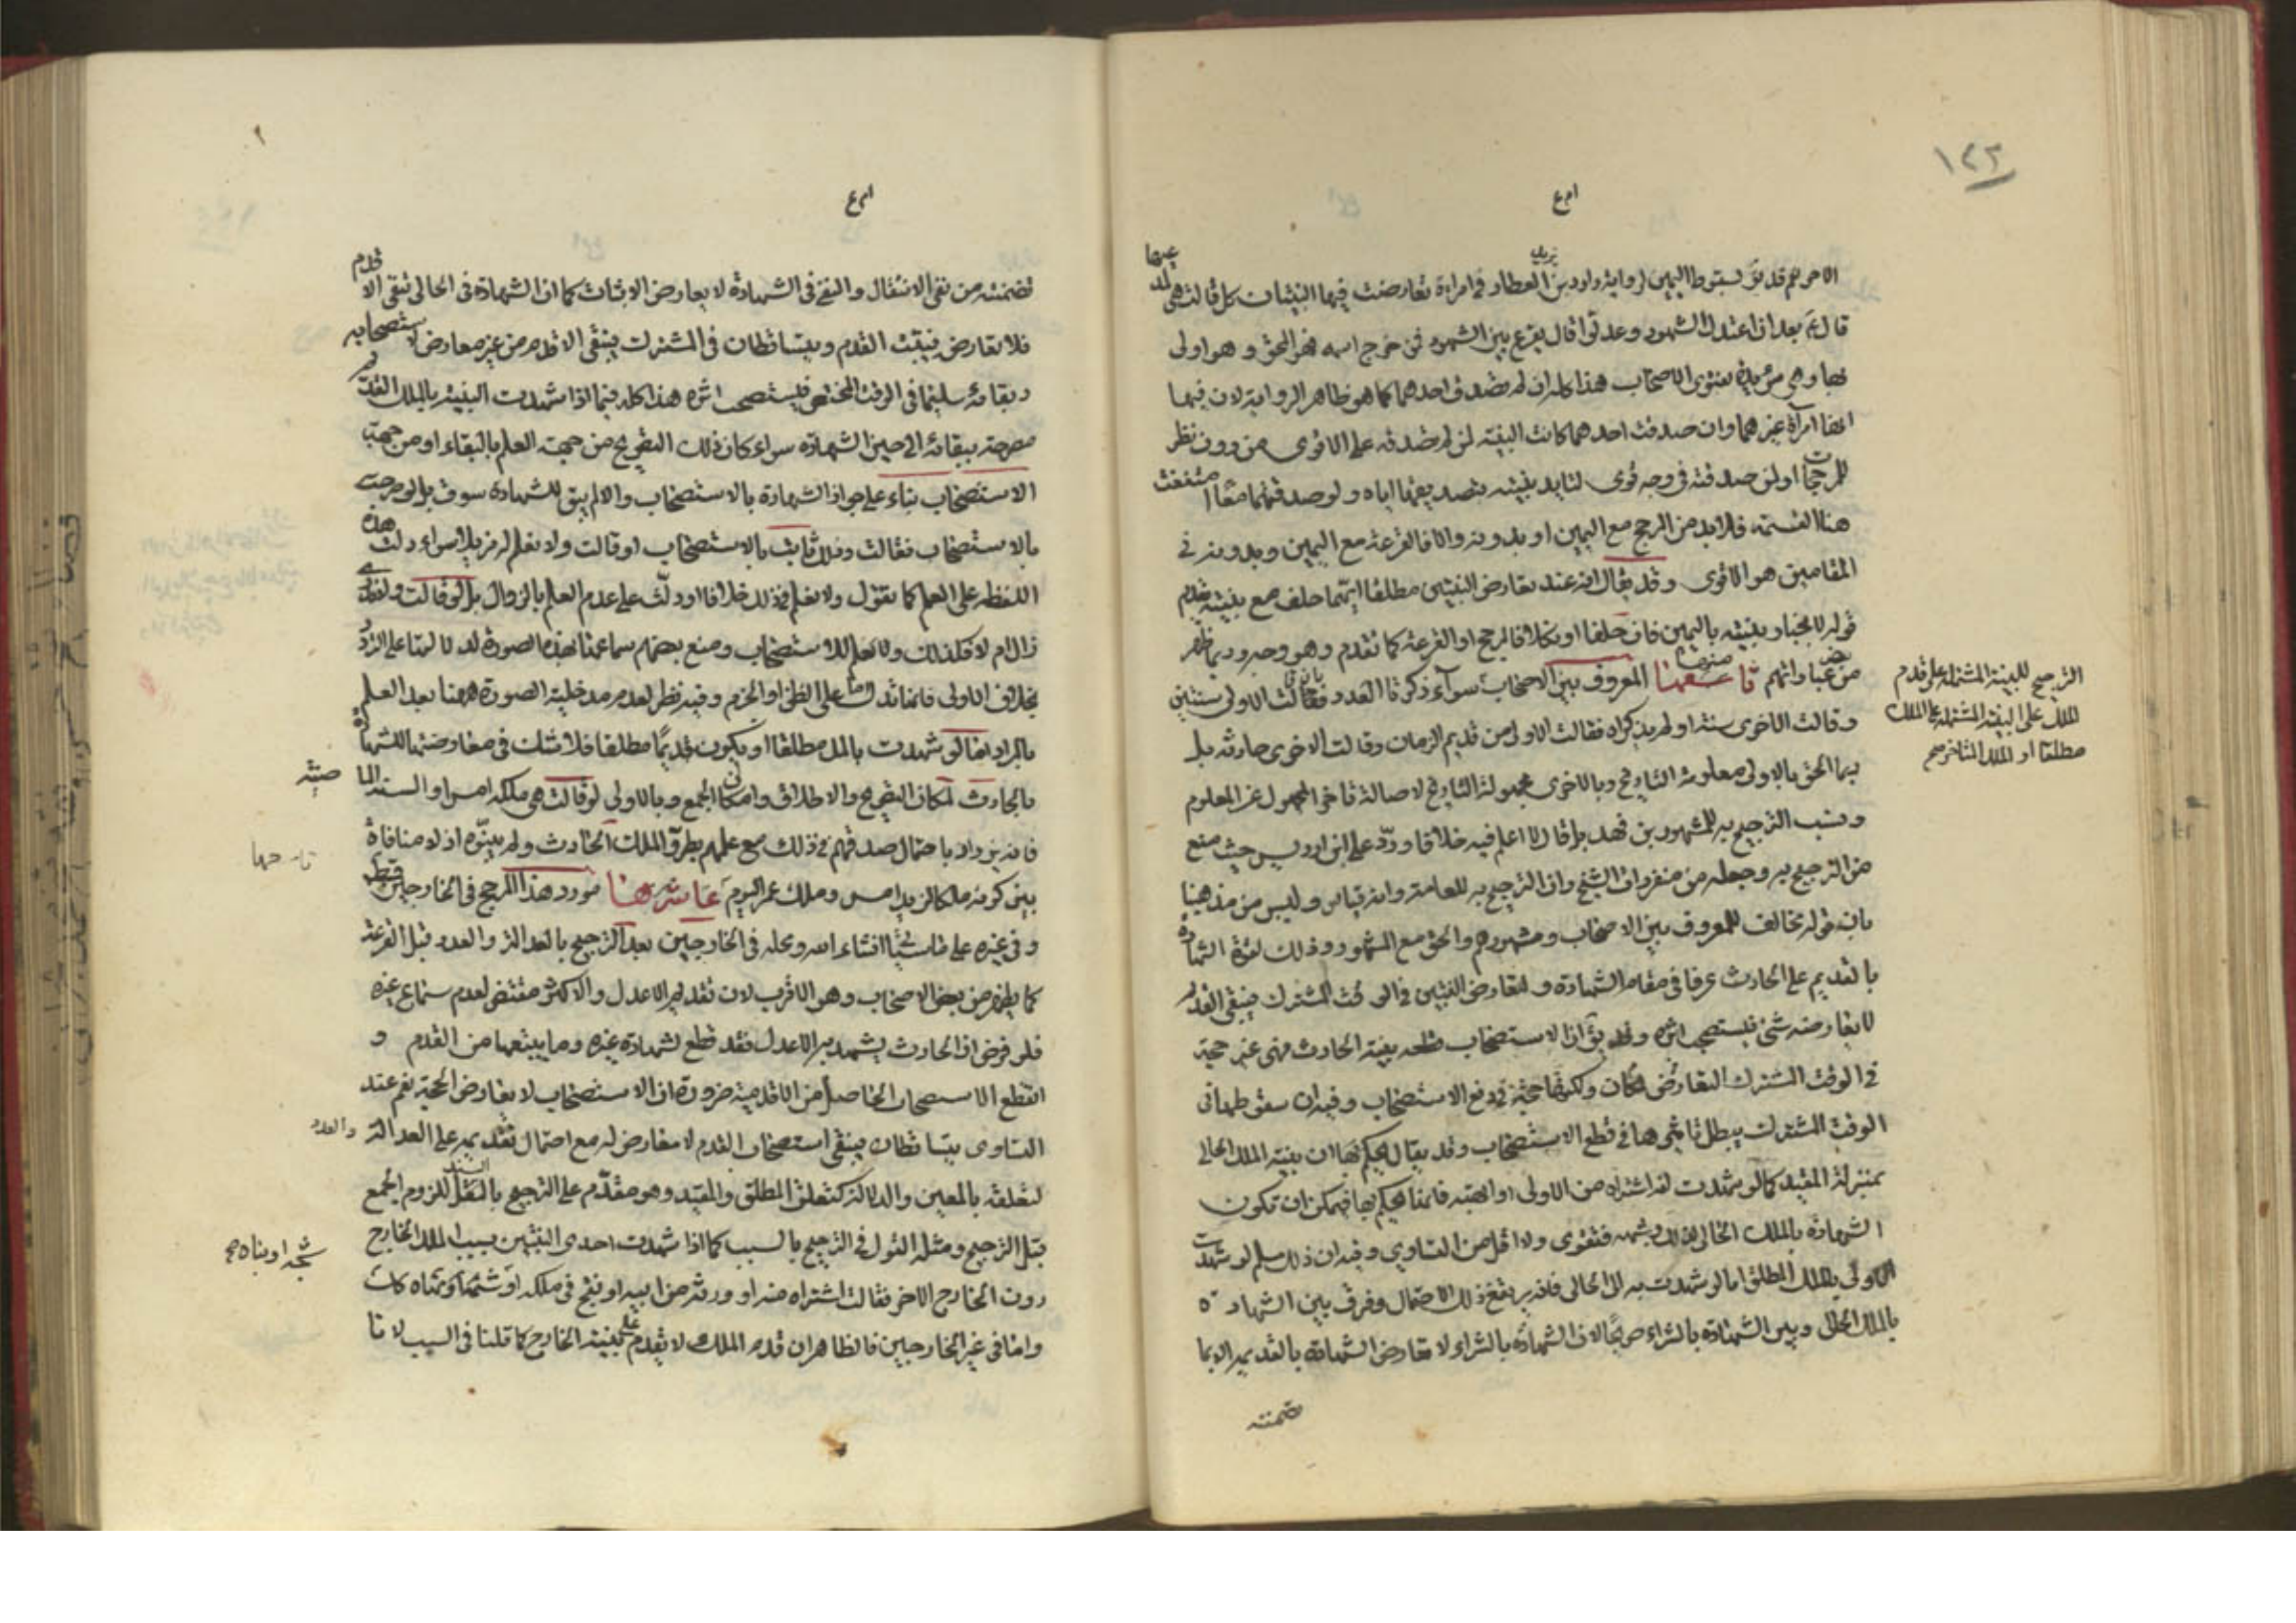 ١٢٢
الامر نعم قد يق بسقوط اليمين لرواية داود بن يزيد العطار في امراة تعارضت فيها البينتان كل قالت هي
قال ع بعد ان اعتدل الشهود وعدلوا قال يقرع بين الشهود فمن خرج اسمه فهو المحق وهو اولى
بها وهي مؤيدة بفتوى الاصحاب هذا كله ان لم تصدق احدهما كما هو ظاهر الرواية لان فيها
امراة غيرهما وان صدقت احدهما كانت البينة لمن لم تصدقه على الاقوى من دون نظر
للمرجحات او لمن صدقته في وجه قوى لتايد بينته بتصديقها اياه ولو صدقتهما معا
هنا القسمة فلا بد من المرجح مع اليمين او بدونه والا فالقرعة مع اليمين وبدونه في
المقامين هو الاقوى وقد يقال انه عند تعارض البينتين مطلقا ايهما حلف مع بينته يقدم
قوله لانجبار بينته باليمين فان حلفا او نكلا فالمرجح او القرعة كما تقدم وهو وجه وربما ظهر
من عباراتهم تاسعها المعروف بين الاصحاب سواء ذكرتا العدد فقالت الاولى سنتين
وقالت الاخرى سنة او لم يذكراه فقالت الاولى من قديم الزمان وقالت الاخرى حادثة بل
ربما الحق بالاولى معلومة التاريخ وبالاخرى مجهولة التاريخ لاصالة تاخر المجهول عن المعلوم
ونسب الترجيح به للمشهور بن فهد بل قال لا اعلم فيه خلافا وردّ على ابن ادريس حيث منع
من الترجيح به وجعله من منفردات الشيخ وان الترجيح به للعامة وانه قياس وليس من مذهبنا
بان قوله مخالف للمعروف بين الاصحاب ومشهورهم والحق مع المشهور وذلك لقوة الشهادة
بالقديم على الحادث عرفا في مقام الشهادة ولتعارض البينتين في الوقت المشترك فيبقى القديم
لا يعارضه شئ فيستصحب اثره وقد يق ان الاستصحاب قطعه بينة الحادث فهي غير حجة
في الوقت المشترك للتعارض لكان ولكنها حجة في دفع الاستصحاب وفيه ان سقوطها في
الوقت المشترك يبطل تاثيرها في قطع الاستصحاب وقد يقال لا يحكم بها ان بينة الملك الحالي
بمنزلة المقيد كما لو شهدت انه اشتراه من الاولى او اتهبه فانما يحكم بها فيمكن ان تكون
الشهادة بالملك الحالى لذلك وشبهه فتقوى ولا اقل من التساوي وفيه ان ذلك مسلم لو شهدت
الاولى بالملك المطلق اما لو شهدت به الى الحالى فانه يرتفع ذلك الاحتمال وفرق بين الشهادة
بالملك الحالى وبين الشهادة بالشراء صريحا لان الشهادة بالشراء لا تعارض الشهادة بالقديم الا بما
تضمنته
الترجيح للبينة المشتملة على قدم
الملك على البينة المشتملة على الملك
مطلقا او الملك المتاخر صح
تضمنته من نفى الانتقال والنفى في الشهادة لا يعارض الاثبات كما ان الشهادة في الحالى تنفى الاقدم
فلا تعارض فيثبت القدم ويتساقطان في المشترك فيبقى الاقدم من غير معارض لاستصحابه
وبقائه سليما في الوقت المختص فيستصحب اثره هذا كله فيما اذا شهدت البينة بالملك القديم
مصرحة ببقائه الى حين الشهادة سواء كان ذلك التصريح من جهة العلم بالبقاء او من جهة
الاستصحاب بناء على جواز الشهادة بالاستصحاب والا لم يبق للشهادة سوق بل لو صرحت
بالاستصحاب فقالت وذلك ثابت بالاستصحاب او قالت ولا نعلم له مزيلا سواء دلت هذه
اللفظة على العلم كما تقول ولا نعلم في ذلك خلافا او دلت على عدم العلم بالزوال بل لو قالت
زال ام لا فكذلك ولا نعلم للاستصحاب ومنع بعضهم سماعها بهذه الصورة لدلالتها على التردد
بخلاف الاولى فانها تدل على الظن او الجزم وفيه نظر لعدم مدخلية الصورة ههنا بعد العلم
بالمراد اما لو شهدت بالملك مطلقا او يكون قديما مطلقا فلا شك في معارضتها للشهادة
بالحادث لمكان التصريح والاطلاق وامكان الجمع وبالاولى لو قالت هي ملكه امس او السنة الماضية
فانه يزداد باحتمال صدقهم في ذلك مع علمهم بطروّ الملك الحادث ولم يبينوه اذ لا منافاة
بين كونه ملكا لزيد امس وملك عمر اليوم عاشرها مورد هذا المرجح في الخارجين فقط
وفي غيره على ما سيجئ انشاء الله ومحله في الخارجين بعد الترجيح بالعدالة والعدد قبل القرعة
كما يظهر من بعض الاصحاب وهو الاقرب لان تقديم الاعدل والاكثر مقتضى لعدم سماع غيره
فلو فرض ان الحادث يشهد به الاعدل فقد قطع لشهادة غيره وما يتبعها من القدم و
انقطع الاستصحاب الحاصل من الاقدمية ضرورة ان الاستصحاب لا يعارض الحجة نعم عند
التساوى يتساقطان فيبقى استصحاب القدم لا معارض له مع احتمال تقديمه على العدالة والعدد
لتعلقه بالمعين والدلالة كتعلق المطلق والمقيد وهو مقدّم على الترجيح بالسند للزوم الجمع
قبل الترجيح ومثله القول في الترجيح بالسبب كما اذا شهدت احدى البينتين بسبب الملك الخارج
دون الخارج الاخر فقالت اشتراه منه او ورثه من ابيه او نتج في ملكه
واما في غير الخارجين فالظاهر ان قدم الملك لا يقدم على بينة الخارج كما قلنا في السبب لانا